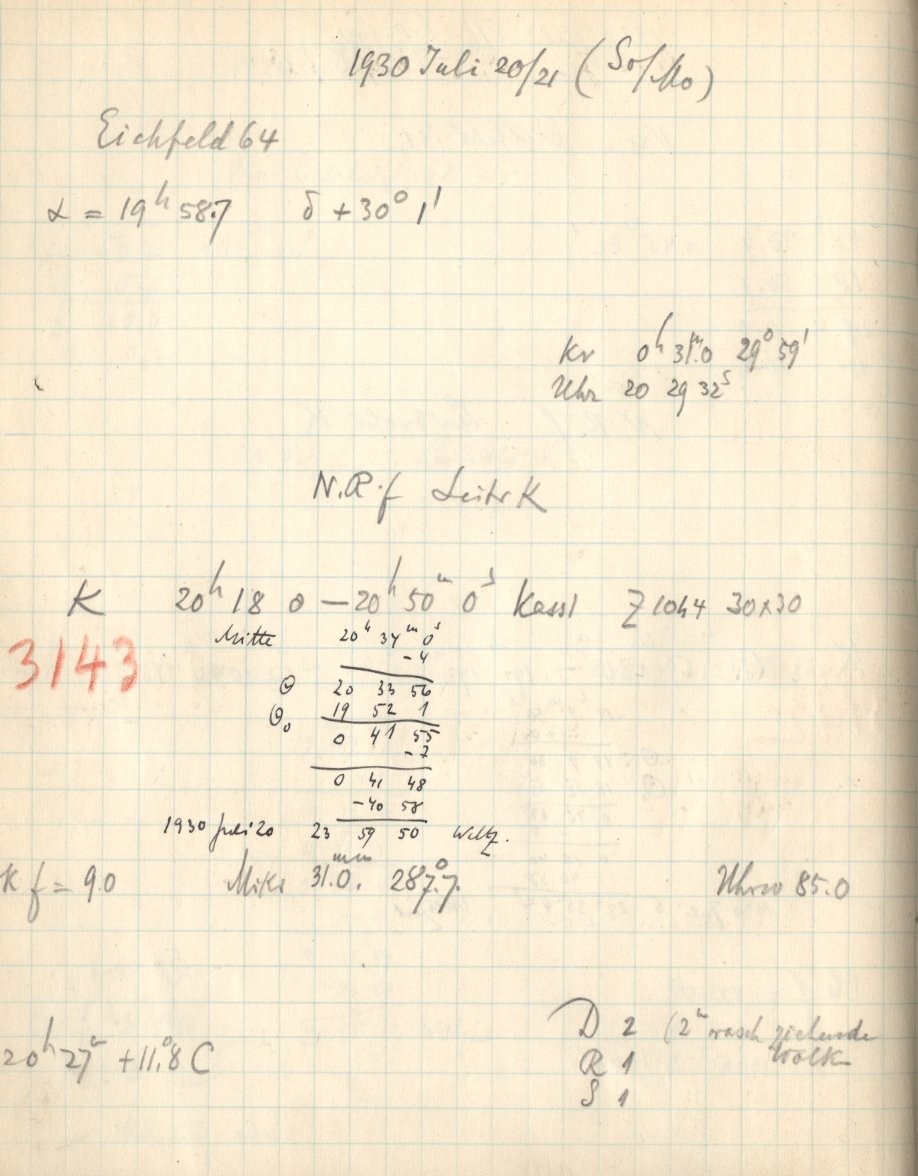 1930 Juli 20/21 (So/Mo)
Eichfeld 64
α = 19h 58.7 δ +30° 1'
Kr 0h 31m.0 29° 59'
Uhr 20 29 32s
N.R.f Leitr K
K 20h 18 0 — 20h 50m 0s Kass1 Z 1044 30x30
Mitte 20h 34m 0s
3143
-4
Θ 20 33 56
Θ0 19 52 1
0 41 55
-7
0 41 48
-40 58
1930 Juli 20 23 59 50 Weltz.
K f = 9.0 Mikr 31.0mm. 287°.7. Uhrw 85.0
20h 27m +11.°8 C
D 2 (2m rasch ziehende
Wolk
R 1
S 1